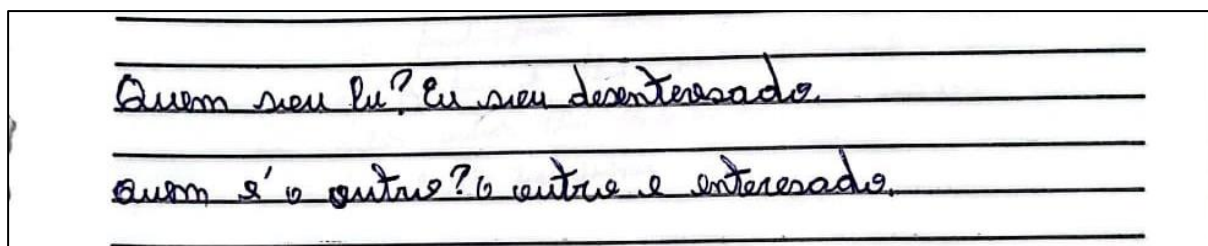 Quem sou Eu? Eu sou desenteresado.
Quem é o outro? O outro e enteresado.